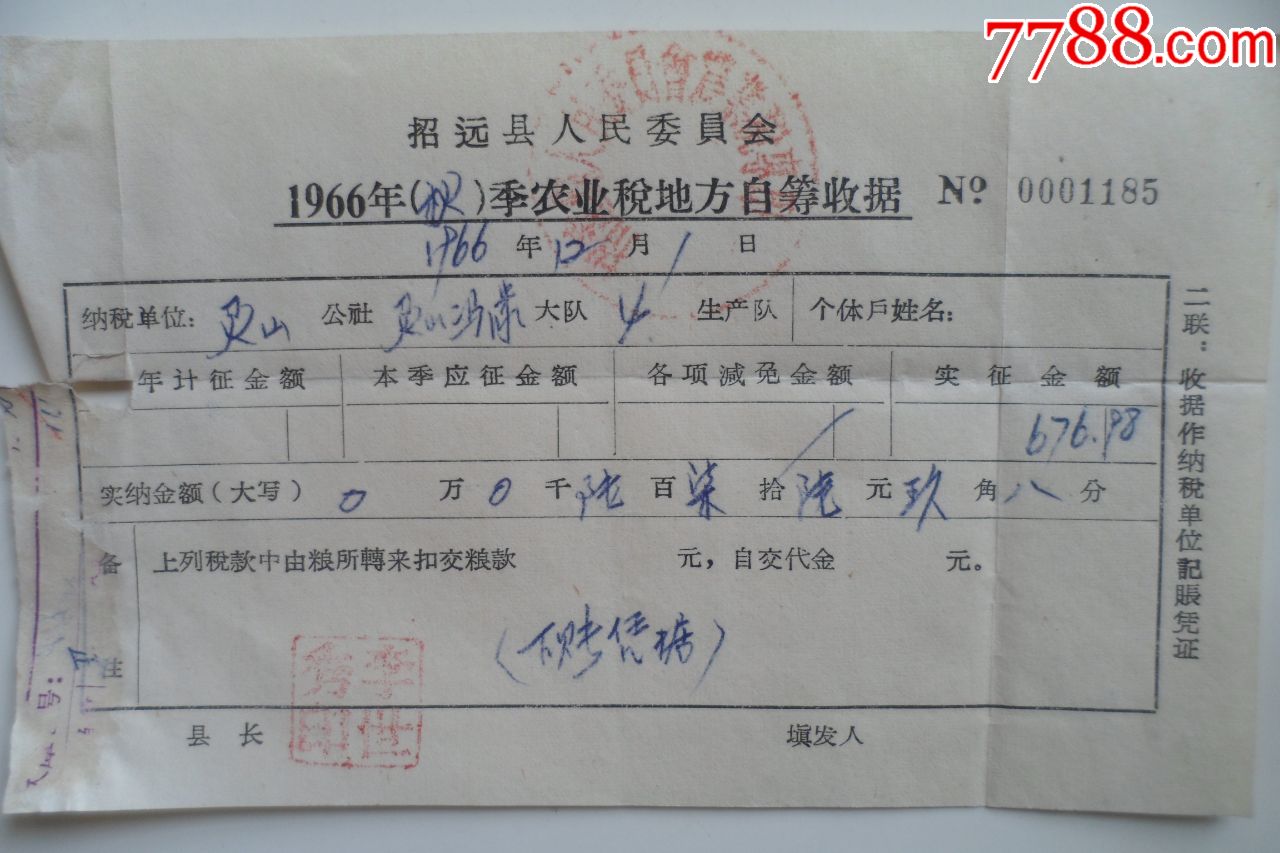 7788.com
招远县人民委員会
1966年(秋)季农业税地方自筹收据 №. 0001185
1966年12月1日
纳税单位: 灵山 公社 灵山 大队 4 生产队 个体戶姓名:
年计征金额 本季应征金额 各项減免金额 实征金额
676.98
实纳金额(大写) 0万0千陆百柒拾陆元玖角八分
备注
上列税款中由粮所轉来扣交粮款 元，自交代金 元。
县长 填发人
李世秀印
二联：收据作纳税单位記賬凭证
号: